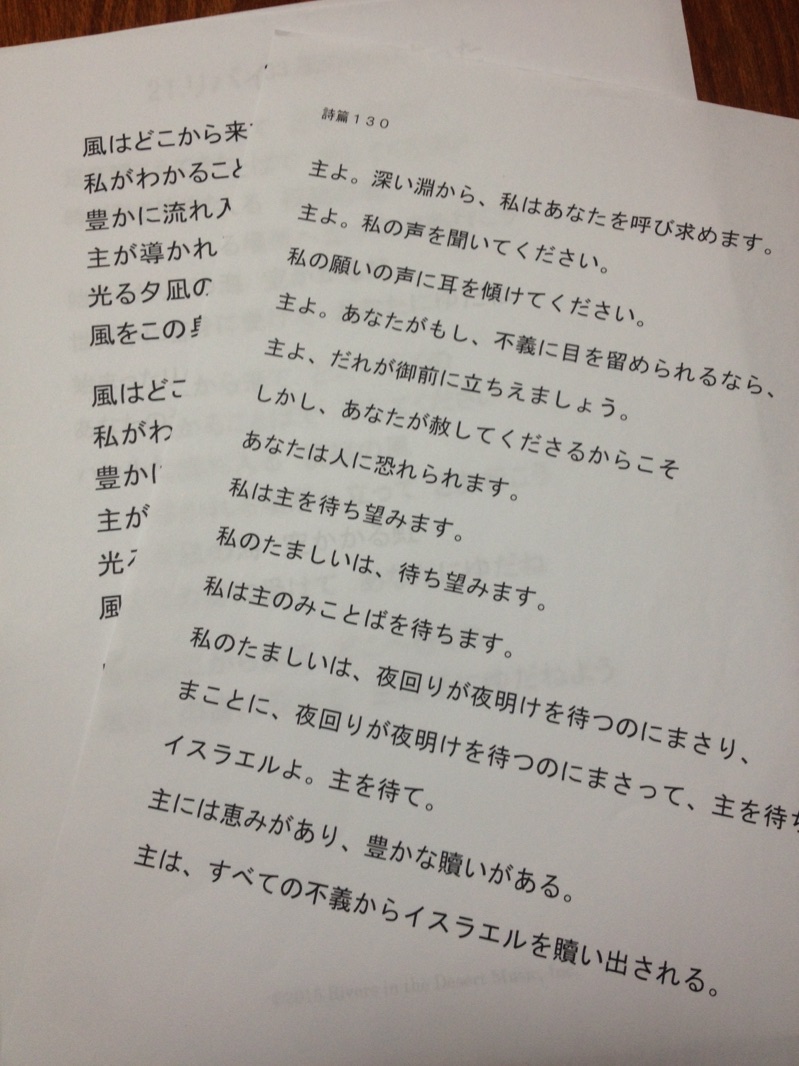 詩篇１３０
主よ。深い淵から、私はあなたを呼び求めます。
主よ。私の声を聞いてください。
私の願いの声に耳を傾けてください。
主よ。あなたがもし、不義に目を留められるなら、
主よ、だれが御前に立ちえましょう。
しかし、あなたが赦してくださるからこそ
あなたは人に恐れられます。
私は主を待ち望みます。
私のたましいは、待ち望みます。
私は主のみことばを待ちます。
私のたましいは、夜回りが夜明けを待つのにまさり、
まことに、夜回りが夜明けを待つのにまさって、主を待ち
イスラエルよ。主を待て。
主には恵みがあり、豊かな贖いがある。
主は、すべての不義からイスラエルを贖い出される。
風はどこから来
私がわかること
豊かに流れ入
主が導かれ
光る夕凪の
風をこの身
風はどこ
私がわ
豊かに
主が
光る
風
©2015 Rivers in the Desert Music, Inc.